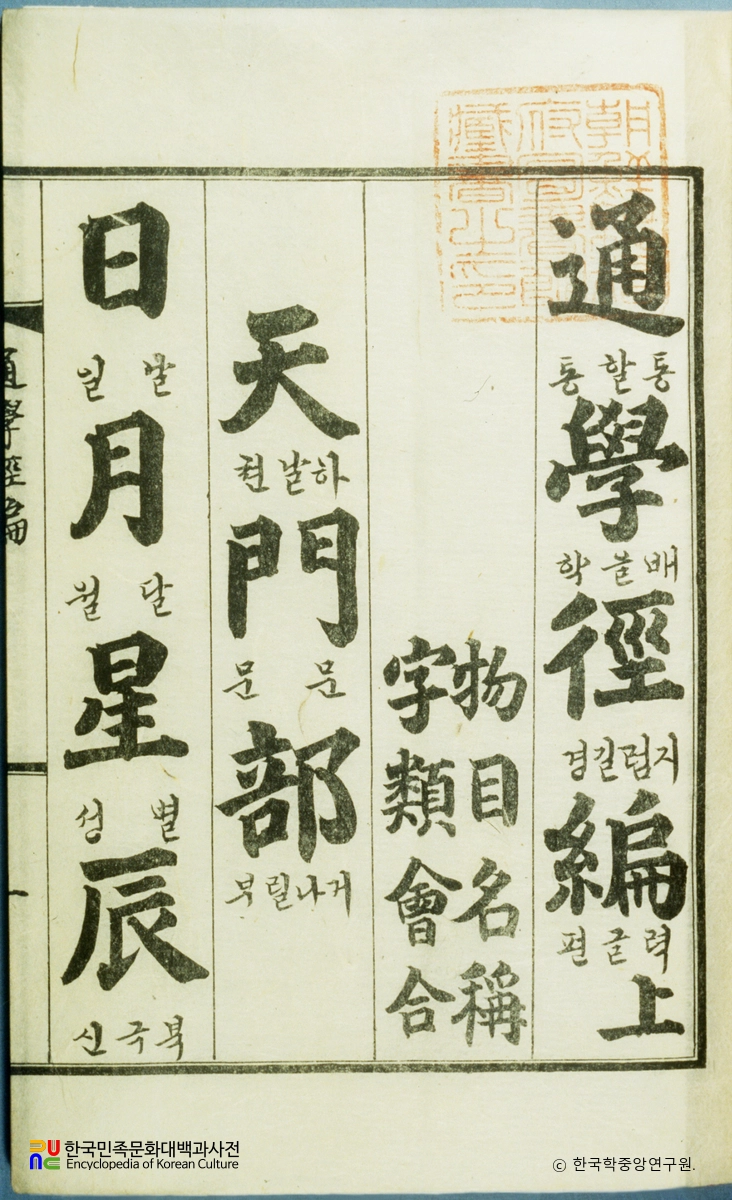 通 통할통 學 배 학 徑 지럼길경 編 력글편 上
物目名稱
字類會合
天 하날천 門 문문 部 거나릴부
日 날일 月 달월 星 별성 辰 북국신
通學徑編
一
朝鮮總督
府圖書館
藏書之印
한국민족문화대백과사전
Encyclopedia of Korean Culture
ⓒ 한국학중앙연구원.